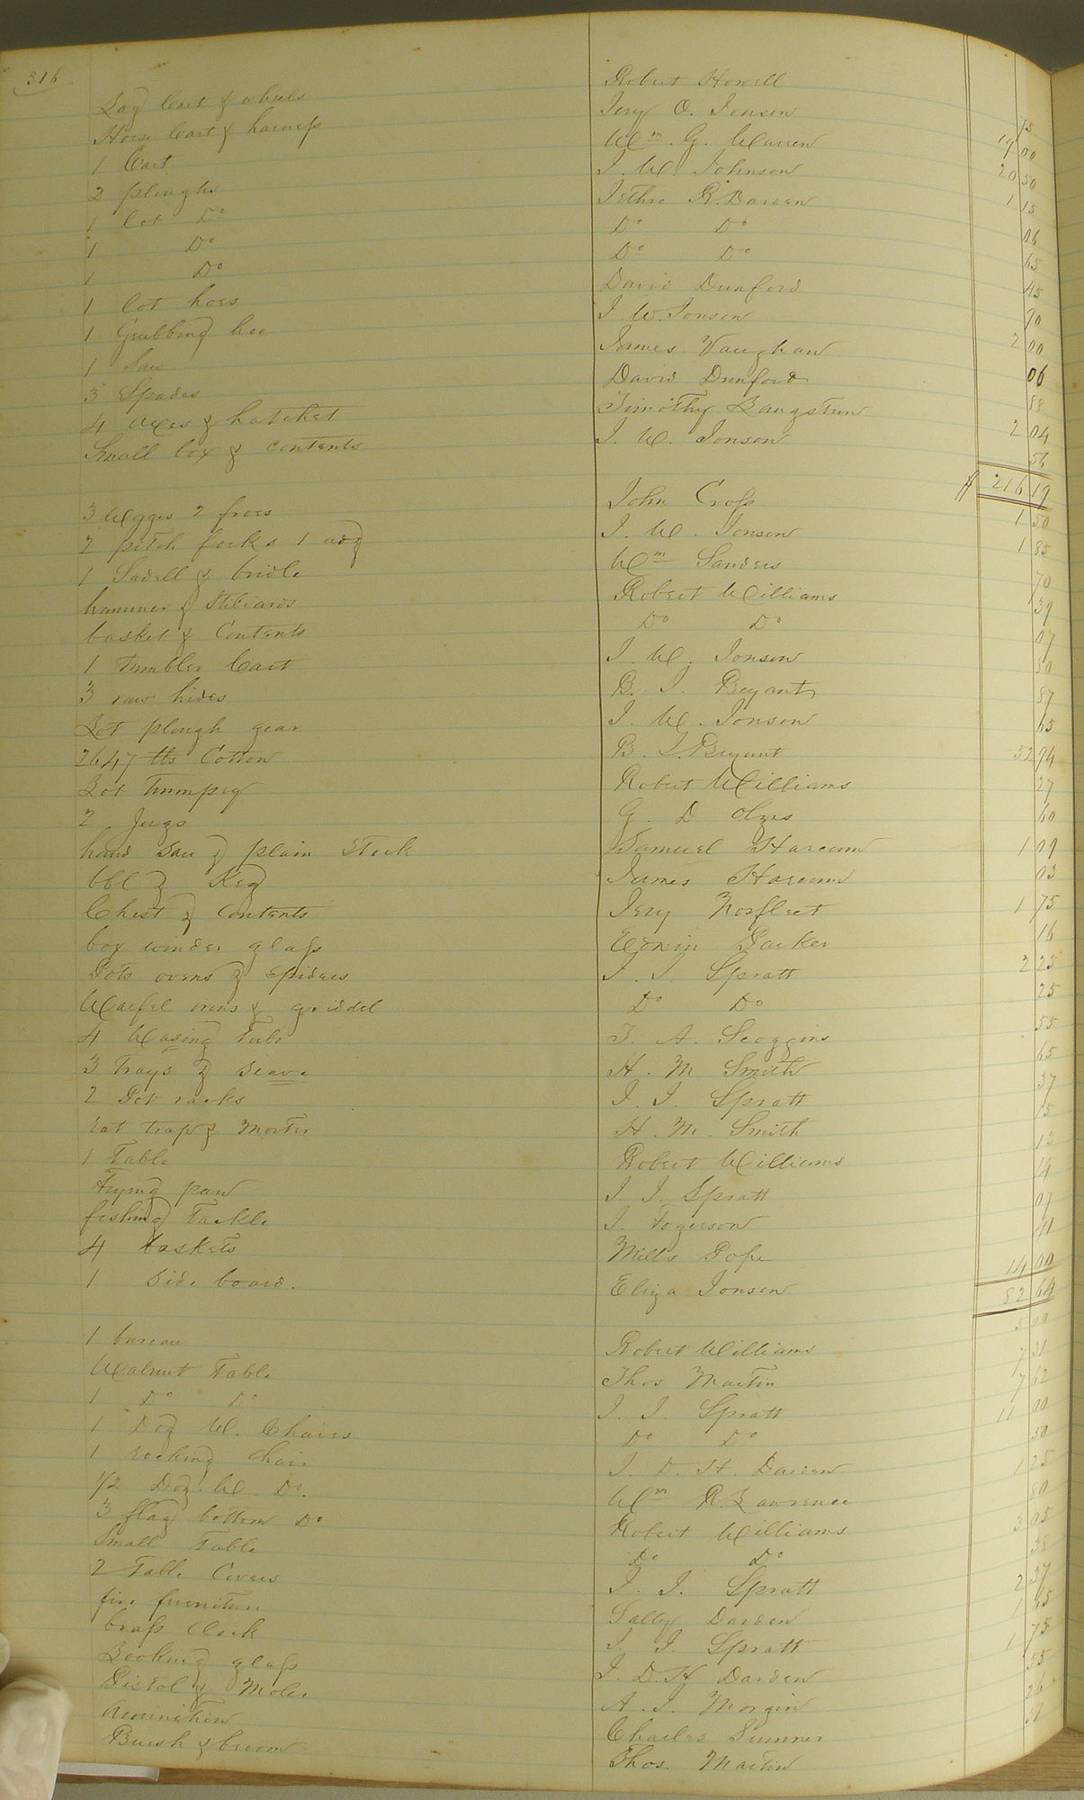 316
Log Cart & wheels Robert Howell 15
Horse Cart & harness Jery O. Jonson 19 00
1 Cart Wm. G. Warren 20 50
2 ploughs J. W. Johnson 1 15
1 lot Do Jethro R. Darden 06
1 Do Do Do 65
1 Do Do Do 45
1 lot hoes David Dunford 90
1 Grubbing hoe J. W. Jonson 2 00
1 Saw James Vaughan 06
3 Spades David Dunford 88
4 axes & hatchet Timothy Bangstun 2 04
Small box & contents J. W. Jonson 56
216 19
3 Wegges 2 froes John Cross 1 50
2 pitch forks 1 adz J. W. Jonson 1 85
1 Sadell & bridle Wm Sanders 70
hammer & Stiliards Robert Williams 39
basket & Contents Do Do 07
1 Tumbler Cart J. W. Jonson 50
3 raw hides B. J. Bryant 87
Lot plough gear J. W. Jonson 65
2647 lbs Cotton B. J. Bryant 52 94
Lot Trumpry Robert Williams 27
2 Jugs G. D. 60
hand Saw & plain Stock Samuel Harcum 1 09
bbl & Keg James Harcum 03
Chest & Contents Jery Norfleet 1 75
box winder glass Erwin Parker 16
Pots ovens & Spiders J. J. Spratt 2 25
Waifel irons & griddel Do Do 25
4 Wasing Tubs T. A. Scoggins 55
3 Trays & Seave H. M. Smith 65
2 Pot racks J. J. Spratt 37
rat trap & Morter H. M. Smith 15
1 Table Robert Williams 12
Frying pan J. J. Spratt 14
fishing Tackle J. Fogerson 07
4 baskets Mills Pope 41
1 Side board. Eliza Jonson 14 00
82 64
1 bureau Robert Williams 5 00
Walnut Table Thos Martin 7 31
1 Do Do J. J. Spratt 7 62
1 Doz W. Chairs Do Do 11 00
1 rocking Chair J. D. H. Darden 50
1/2 Doz. W. Do. Wm R. Lawrence 1 25
3 flag bottom Do Robert Williams 80
Small Table Do Do 3 05
2 Table Covers J. J. Spratt 38
fire furniture Sally Darden 2 37
brass Clock J. J. Spratt 1 65
Looking glass J. D. H. Darden 1 75
Pistol & Moles A. J. Morgin 55
Aminition Charles Sumner 26
Brush & broom Thos. Martin 51